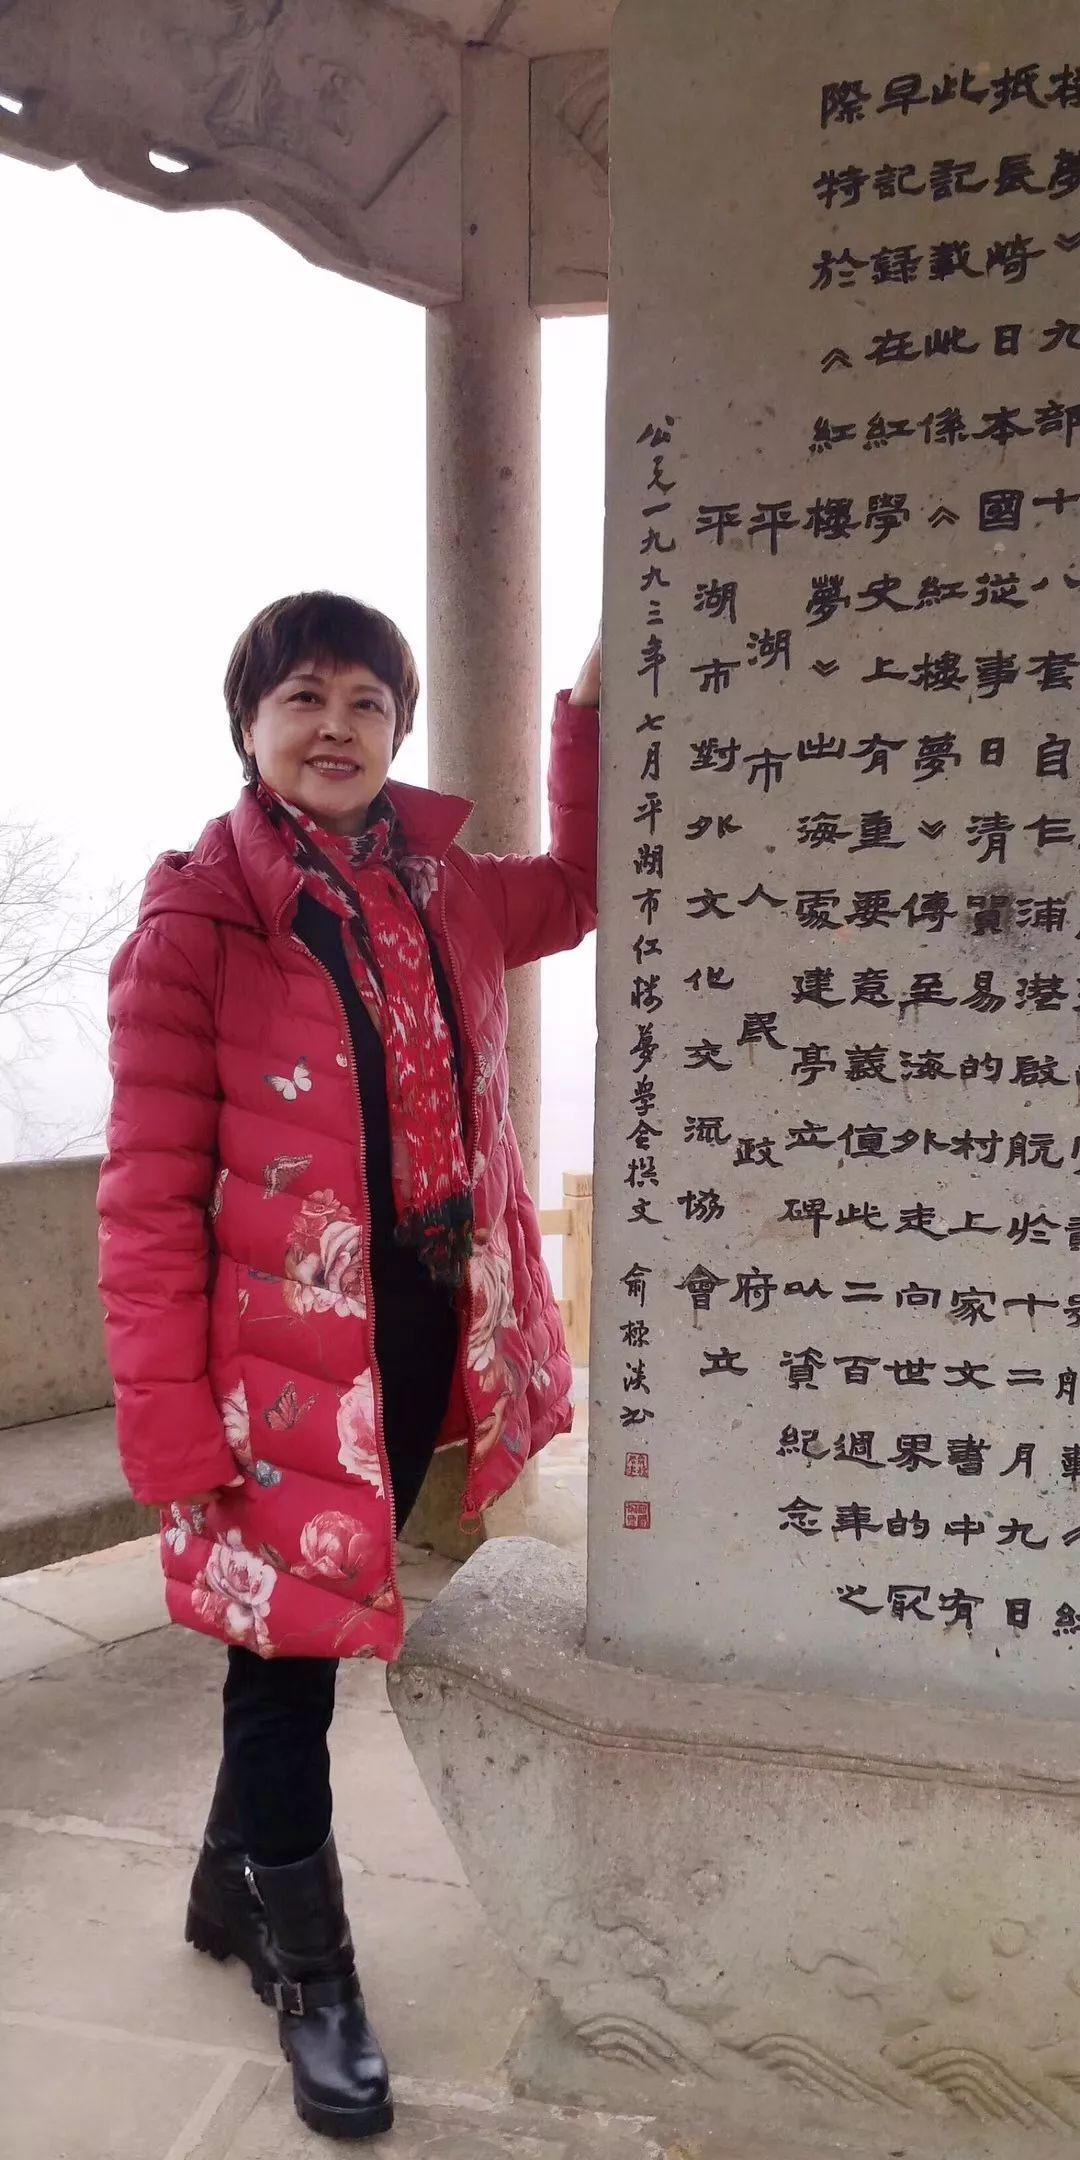 樓夢》九部十八套自乍浦港啟航於十二月九日
抵長崎日本國從事日清貿易的村上家文書中有
此記載此係《紅樓夢》傳至海外走向世界的冣
早記錄在紅學史上有重要意義值此二百週年之
際特於《紅樓夢》出海處建亭立碑以資紀念
平湖市人民政府
平湖市對外文化交流協會 立
公元一九九三年七月平湖市红楼夢學会撰文 俞